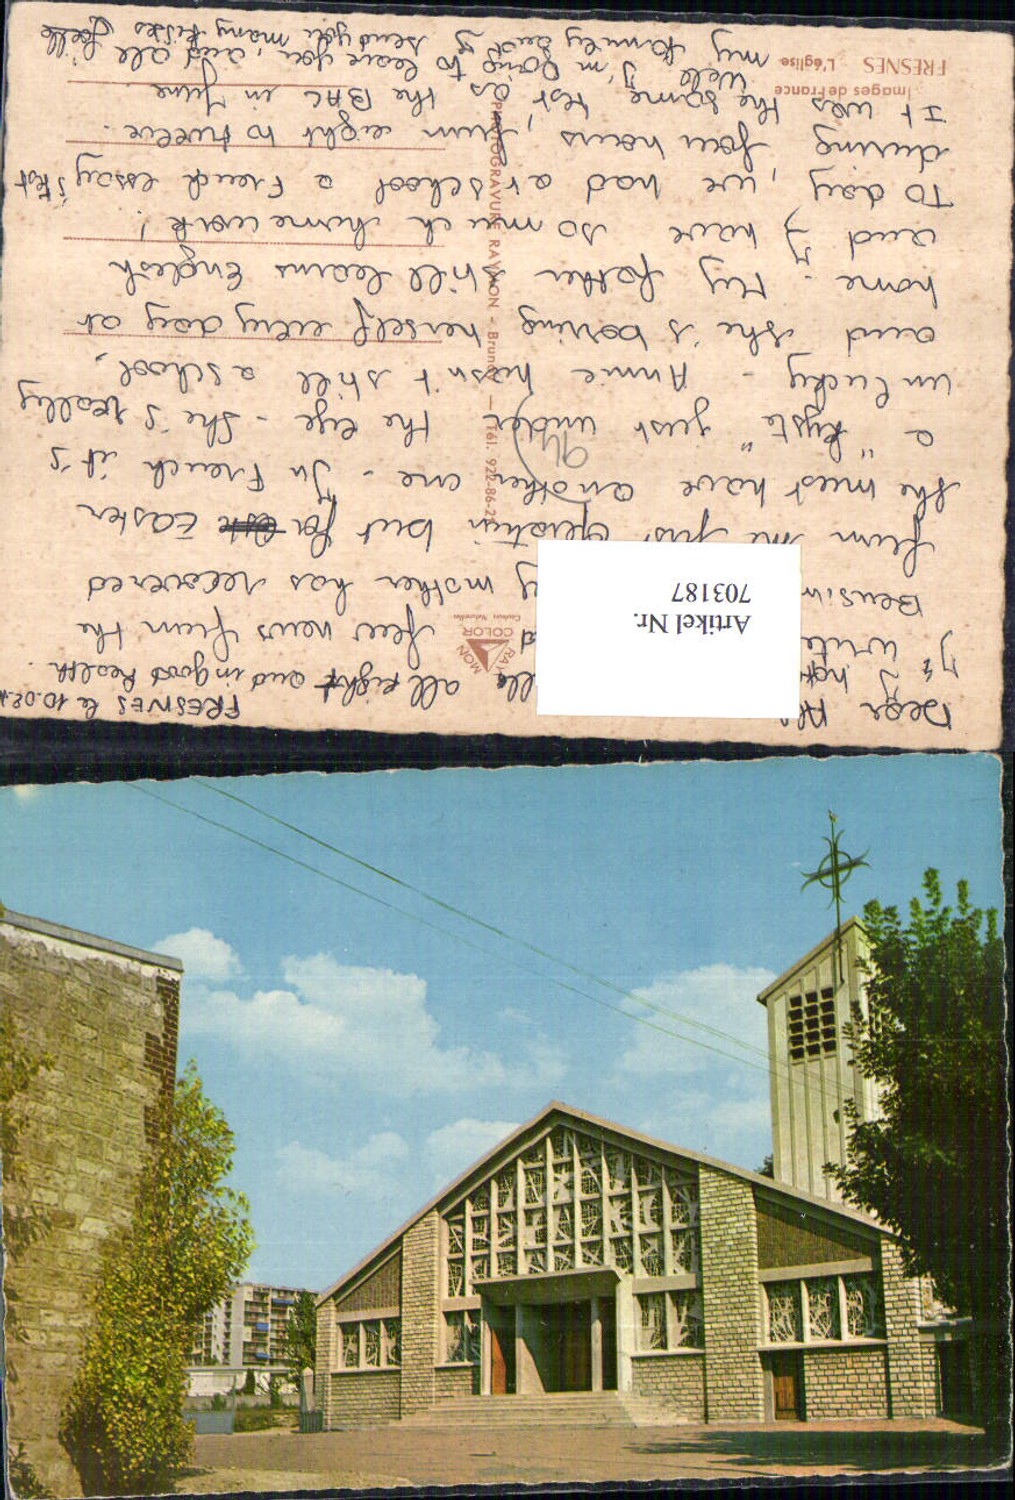 FRESNES le 10.02.
Dear
I hope all right and in good health.
I write few news from the
mother has recovered
from one just operation but for Easter
she must have another one - In French it's
a "Kyste" just under the eye - She's really
unlucky - Annie hasn't still a school,
and she's boring herself every day at
home - My father still learns English
and I have so much homework!
To day, we had at school a French essay test
during four hours, from eight to twelve.
It was the same test as the BAC in June
Well I'm going to leave you, and all
my family and I send you many kisses Joelle
FRESNES L'église
Images de France
PHOTOGRAVURE RAYMON - Brunoy - Tél. 922-86-2
RAYMON
COLOR
Couleurs Naturelles
Artikel Nr.
703187